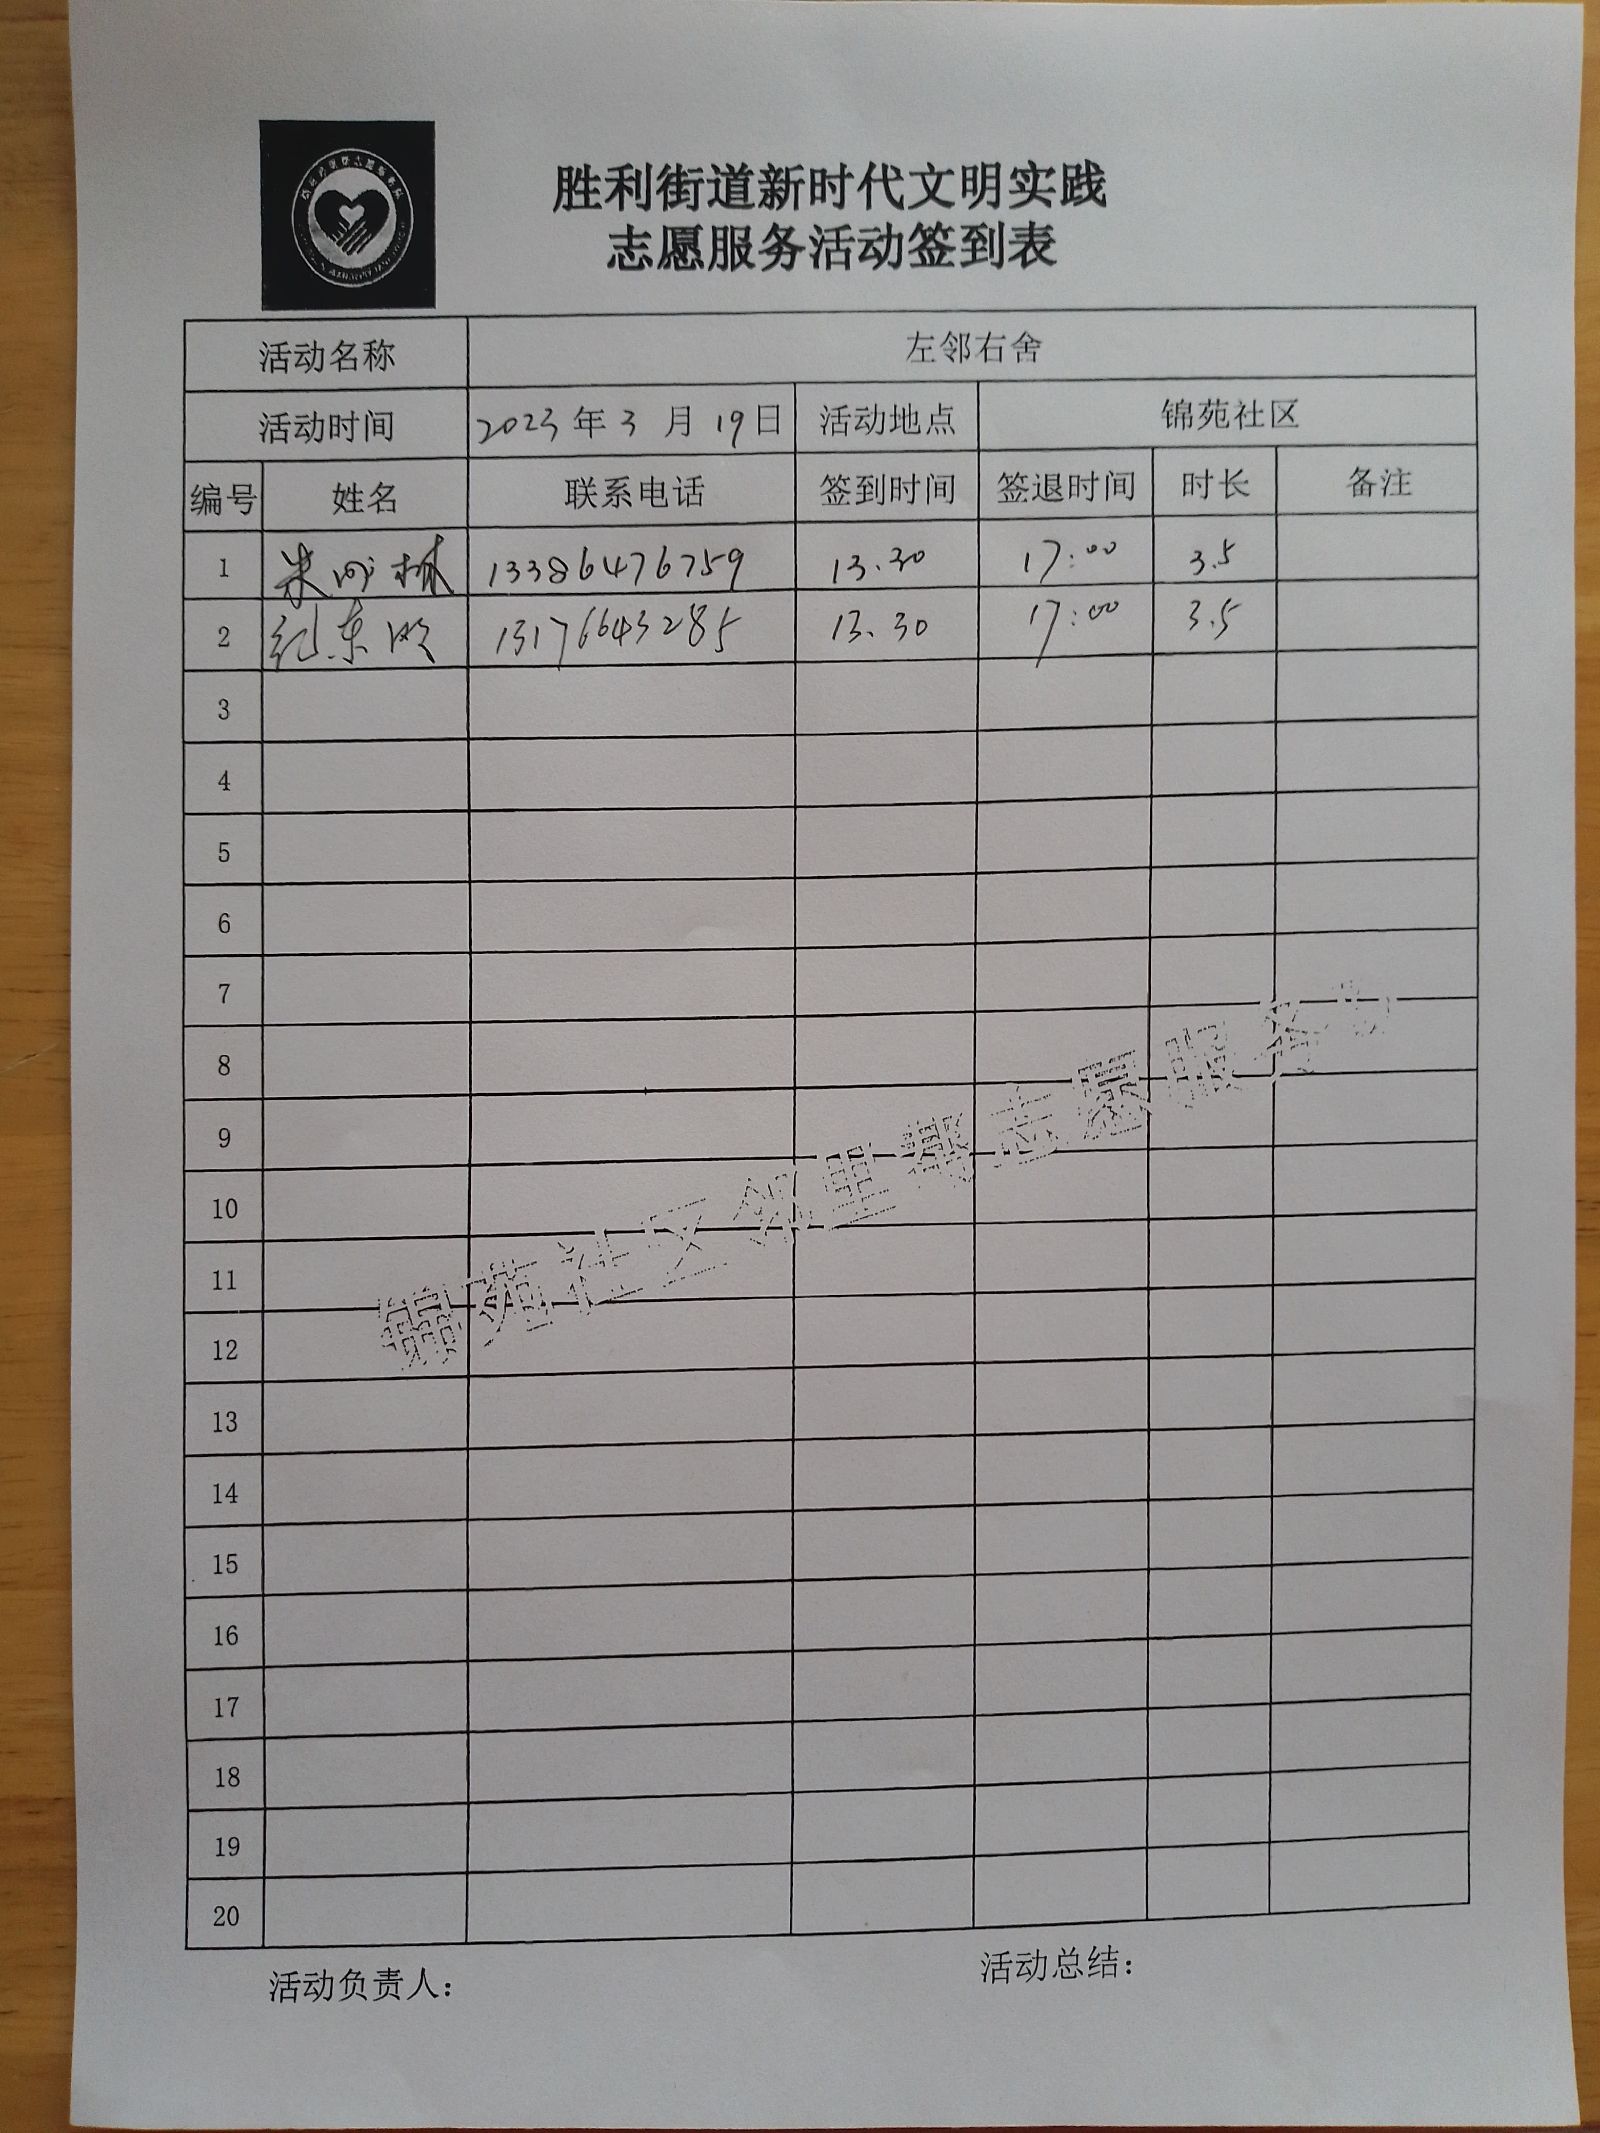 胜利街道新时代文明实践
志愿服务活动签到表
活动名称 左邻右舍
活动时间 2023年3月19日 活动地点 锦苑社区
编号 姓名 联系电话 签到时间 签退时间 时长 备注
1 林 13386476759 13.30 17:00 3.5
2 纪东 13176643285 13.30 17:00 3.5
3
4
5
6
7
8
9
10
11
12
13
14
15
16
17
18
19
20
锦苑社区邻里帮志愿服务
活动负责人：
活动总结：